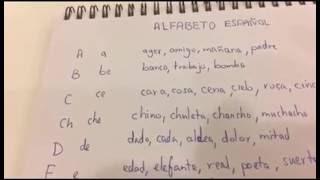 ALFABETO ESPAÑOL
A a ager, amigo, mañana, padre
B be banco, trabajo, bomba
C ce cara, cosa, cena, club, roca, cinc
Ch che chino, chuleta, chancho, muchacho
D de dado, cada, aldea, dolor, mitad
E e edad, elefante, real, poeta, suerte